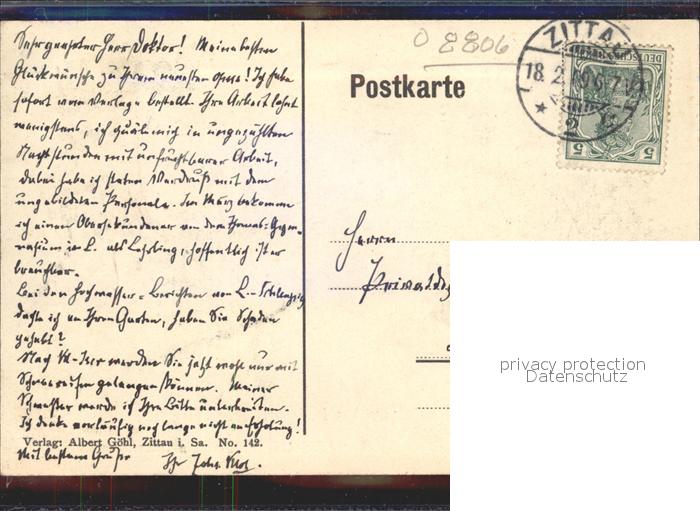 Sehr geehrter Herr Doktor! Meine besten
Glückwünsche zu Ihrem neuesten Opus! Ich habe
sofort vom Verlage bestellt. Ihre Arbeit lohnt
wenigstens, ich quäle mich in ungezählten
Nachtstunden mit unfruchtbarer Arbeit,
dabei habe ich steten Verdruß mit dem
ungebildeten Personale. Im März bekomme
ich einen Obersekundaner von dem Thomas-Gym-
nasium in L. als Lehrling, hoffentlich ist er
brauchbar.
Bei den Hochwasser-Berichten von L.-
dachte ich an Ihren Garten, haben Sie Schaden
gehabt?
Nach werden Sie jetzt wohl nur mit
Schneereifen gelangen können. Meiner
Schwester werde ich Ihre Bitte unterbreiten.
Ich denke vorläufig noch lange nicht an Erholung!
Verlag: Albert Göhl, Zittau i. Sa. No. 142.
Mit bestem Gruße Ihr Johs.
8806
Postkarte
ZITTAU
18. 2.
2
DEUTSCHES
5 5
Herrn
privacy protection
Datenschutz